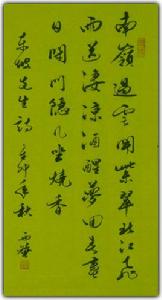 南嶺過雲開紫翠北江飛
雨送淒涼酒醒夢回春盡
日閉門隱几坐燒香
東坡先生詩 辛卯年秋